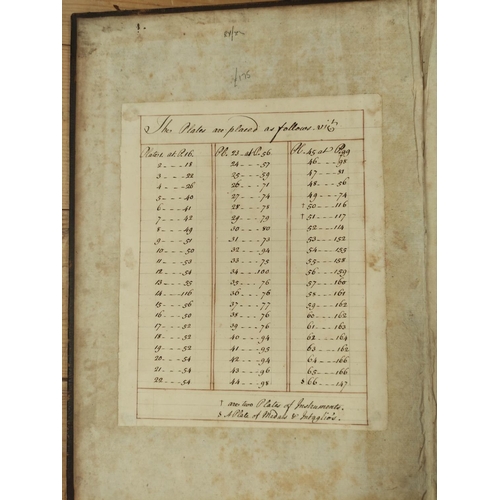 The Plates are placed as follows. vizt.
Plate 1. at P. 16. Pl. 23 at P. 56. Pl. 45 at P. 99
2 - - - 18 24 - - - 57 46 - - - 98
3 - - - 22 25 - - - 59 47 - - - 81
4 - - - 26 26 - - - 71 48 - - - 56
5 - - - 40 27 - - - 74 49 - - - 74
6 - - - 41 28 - - - 78 50 - - - 116
7 - - - 42 29 - - - 79 51 - - - 117
8 - - - 49 30 - - - 80 52 - - - 114
9 - - - 51 31 - - - 73 53 - - - 152
10 - - - 50 32 - - - 94 54 - - - 155
11 - - - 53 33 - - - 75 55 - - - 158
12 - - - 54 34 - - - 100 56 - - - 159
13 - - - 55 35 - - - 76 57 - - - 160
14 - - - 116 36 - - - 76 58 - - - 161
15 - - - 56 37 - - - 77 59 - - - 162
16 - - - 50 38 - - - 76 60 - - - 162
17 - - - 52 39 - - - 76 61 - - - 163
18 - - - 52 40 - - - 94 62 - - - 164
19 - - - 52 41 - - - 95 63 - - - 162
20 - - - 54 42 - - - 94 64 - - - 166
21 - - - 54 43 - - - 96 65 - - - 166
22 - - - 54 44 - - - 98 & 66 - - - 147
are two Plates of Instruments.
& A Plate of Medals & Intaglio's.